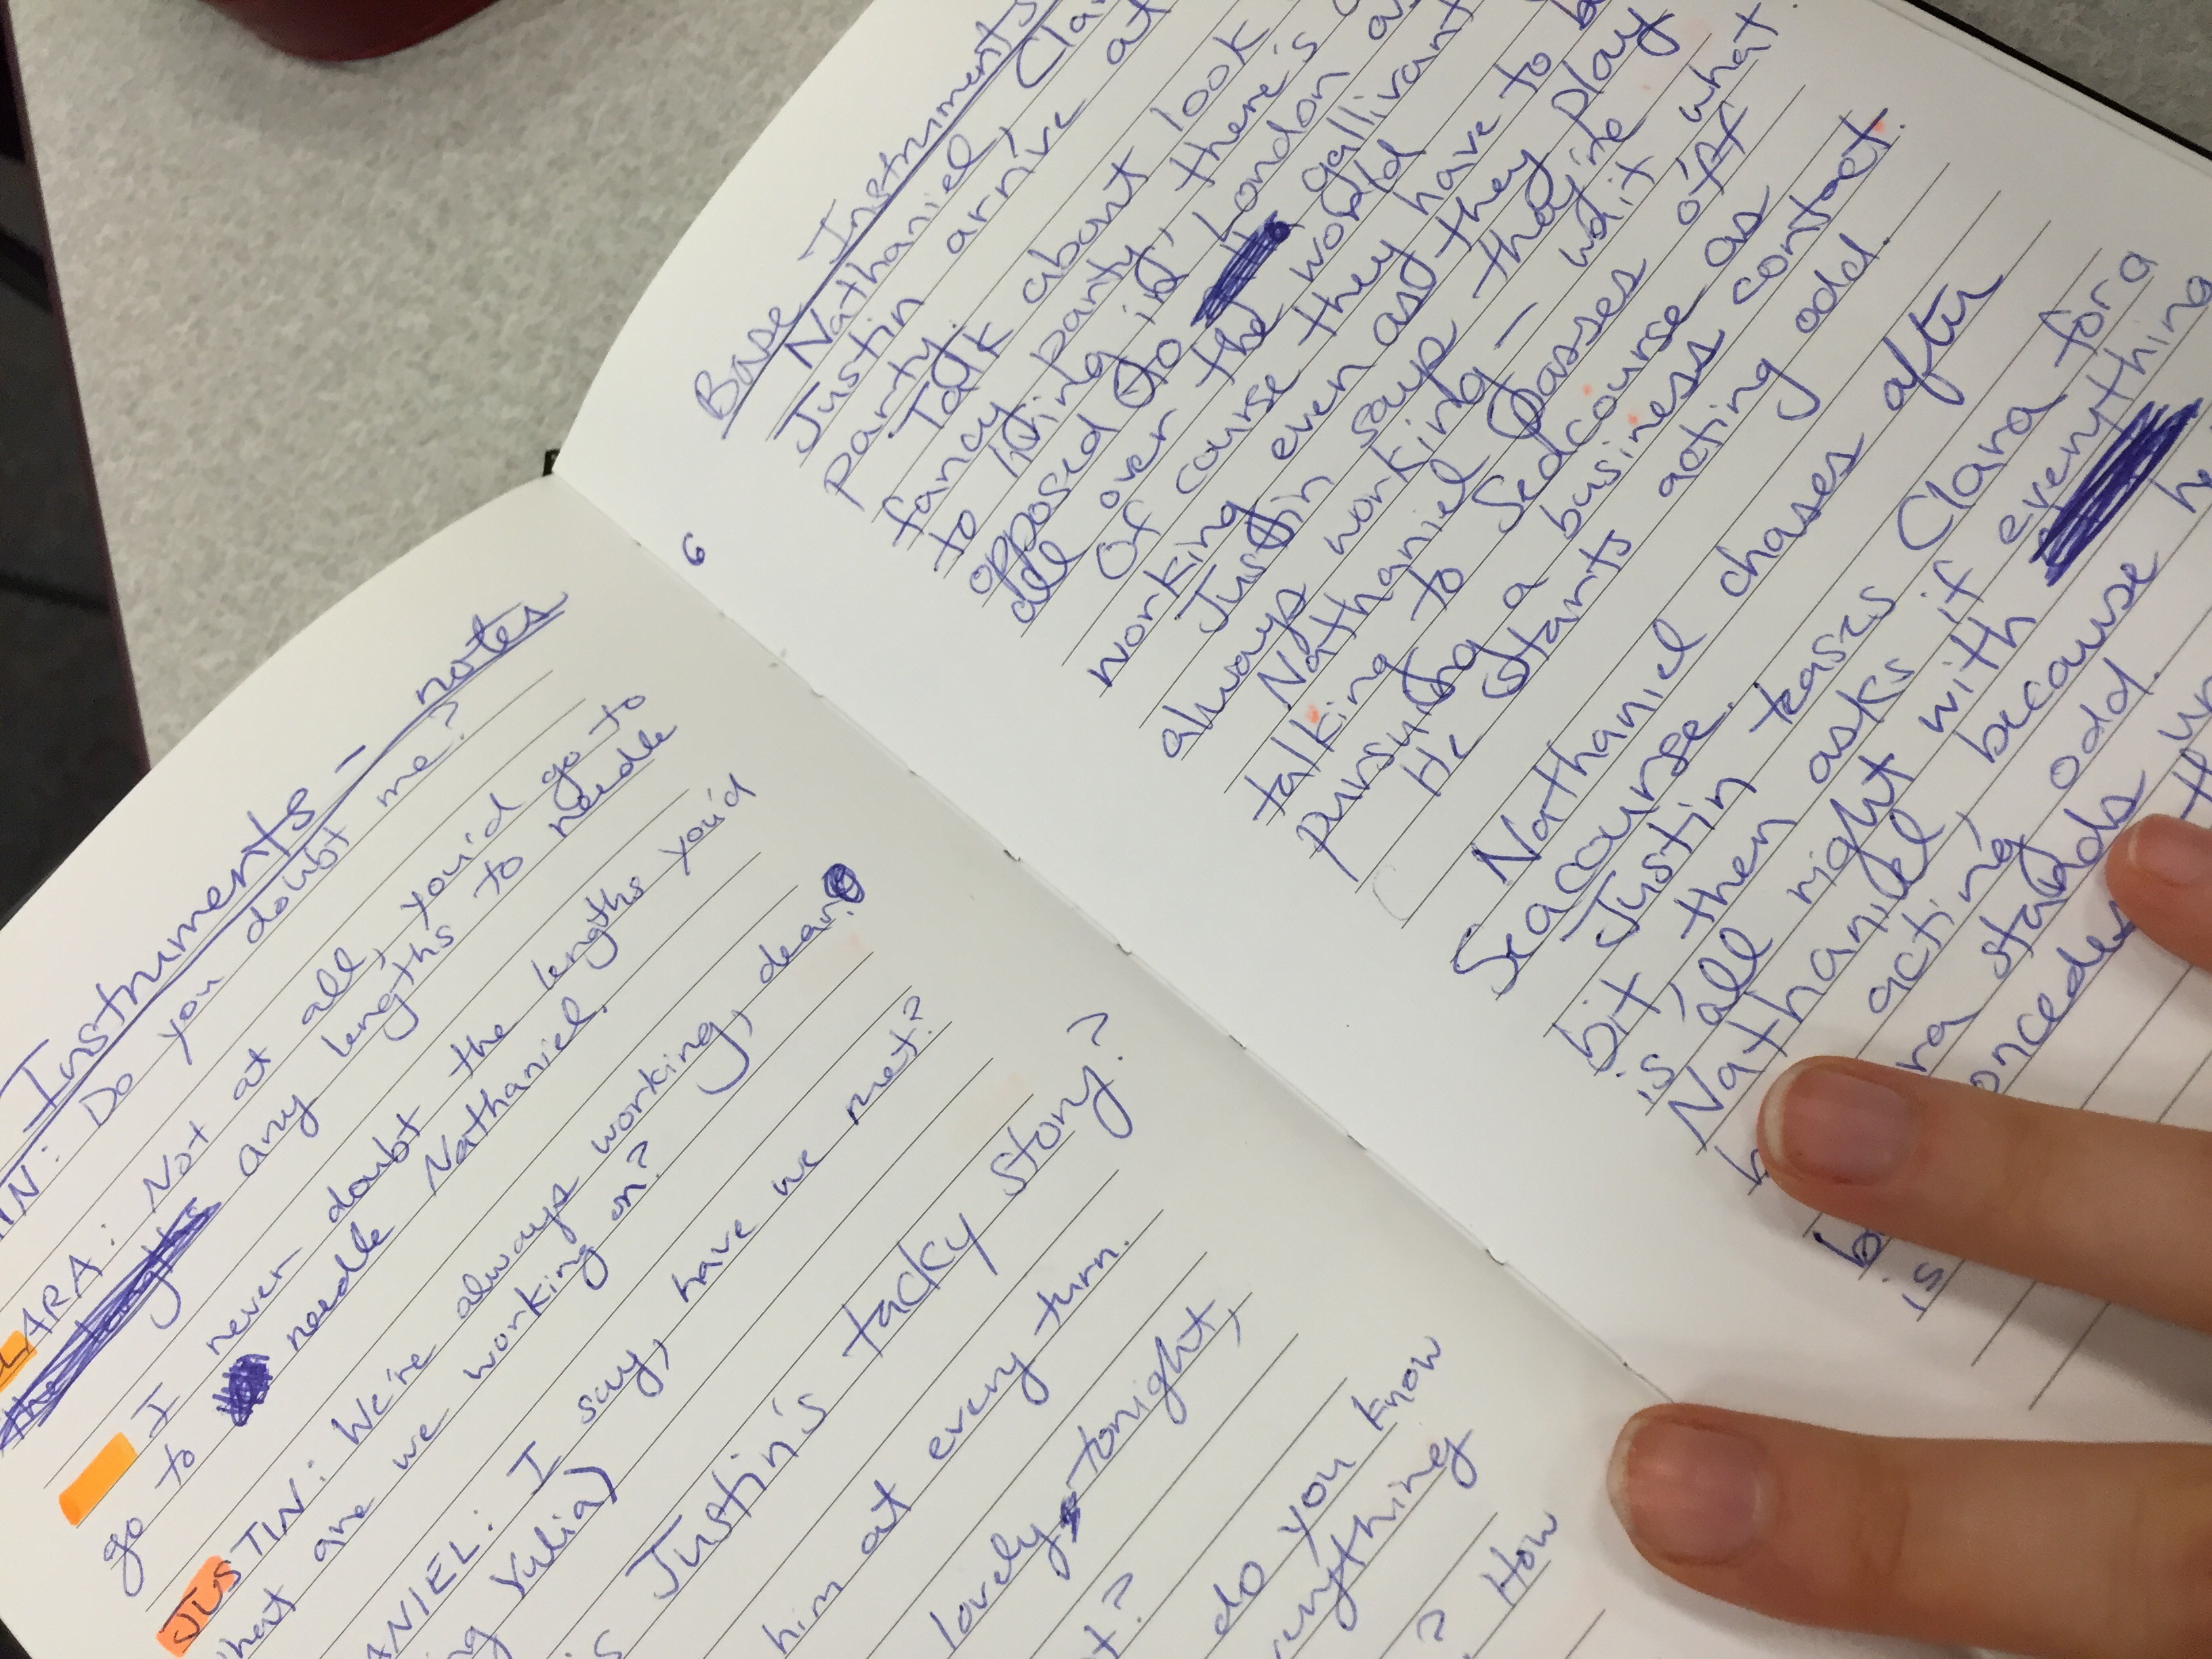 Instruments - notes
IN: Do you doubt me?
ARA: Not at all, you'd go to
any lengths to needle
I never doubt the lengths you'd
go to needle Nathaniel.
JUSTIN: We're always working, dear.
hat are we working on?
ANIEL: I say, have we met?
ng Yulia)
is Justin's tacky story?
him at every turn.
lovely tonight,
t?
do you know
rything
? How
6
Base Instruments
Nathaniel, Clar
Justin arrive at
party.
Talk about look
fancy party, there's
to being in London as
opposed to gallivant
all over the world
Of course they have to b
working even as they play
Justin says they're
always working - wait what
Nathaniel passes off
talking to Sedcourse as
pursuing a business contact.
He starts acting odd.
Nathaniel chases after
Seacourse.
Justin teases Clara for a
bit, then asks if everything
is all right with
Nathaniel because he
acting odd.
ra stands
oncedes
is